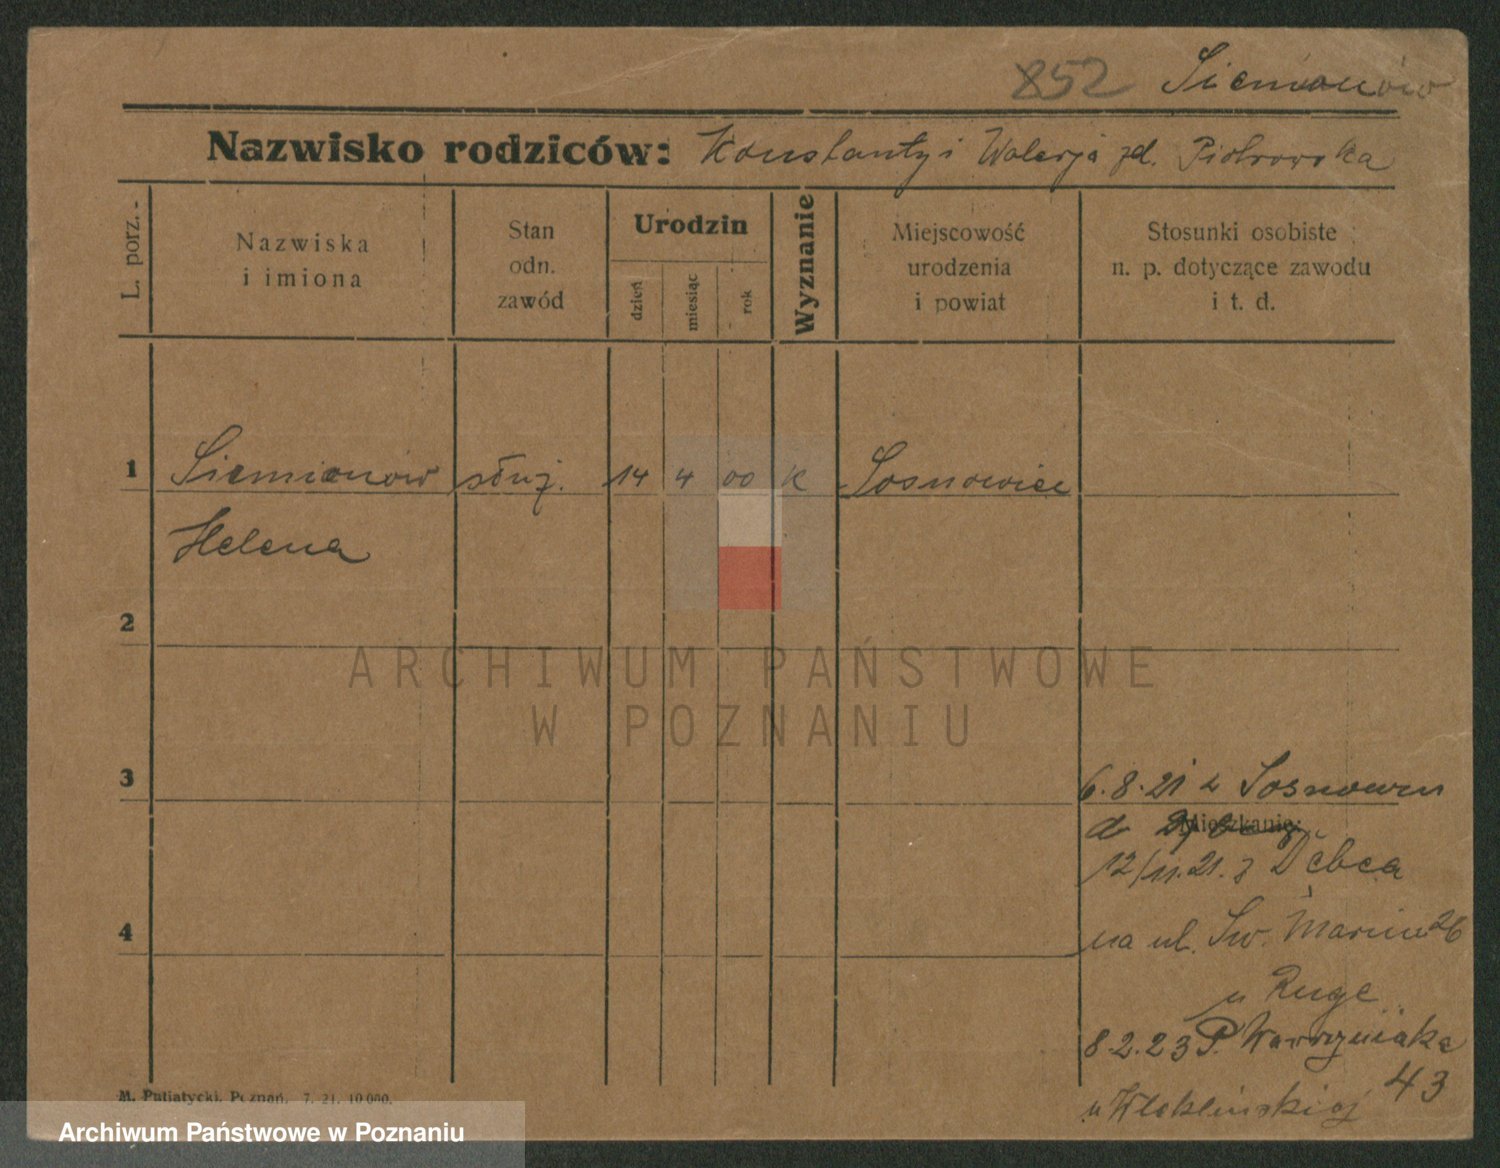 852 Siemionów
Nazwisko rodziców: Konstanty i Walerja zd. Piotrowska
L. porz.
Nazwiska
i imiona
Stan
odn.
zawód
Urodzin
dzień
miesiąc
rok
Wyznanie
Miejscowość
urodzenia
i powiat
Stosunki osobiste
n. p. dotyczące zawodu
i t. d.
1 Siemionów służ. 14 4 00 K Sosnowiec
Helena
2
ARCHIWUM PAŃSTWOWE
W POZNANIU
3
6.8.21 z Sosnowca
Mieszkanie:
12/11.21. z Dębca
4
na ul. Św. Marcin 26
u Ruge
8.2.23 P. Wawrzyniaka
43
u
M. Putiatycki, Poznań. 7. 21. 10 000.
Archiwum Państwowe w Poznaniu